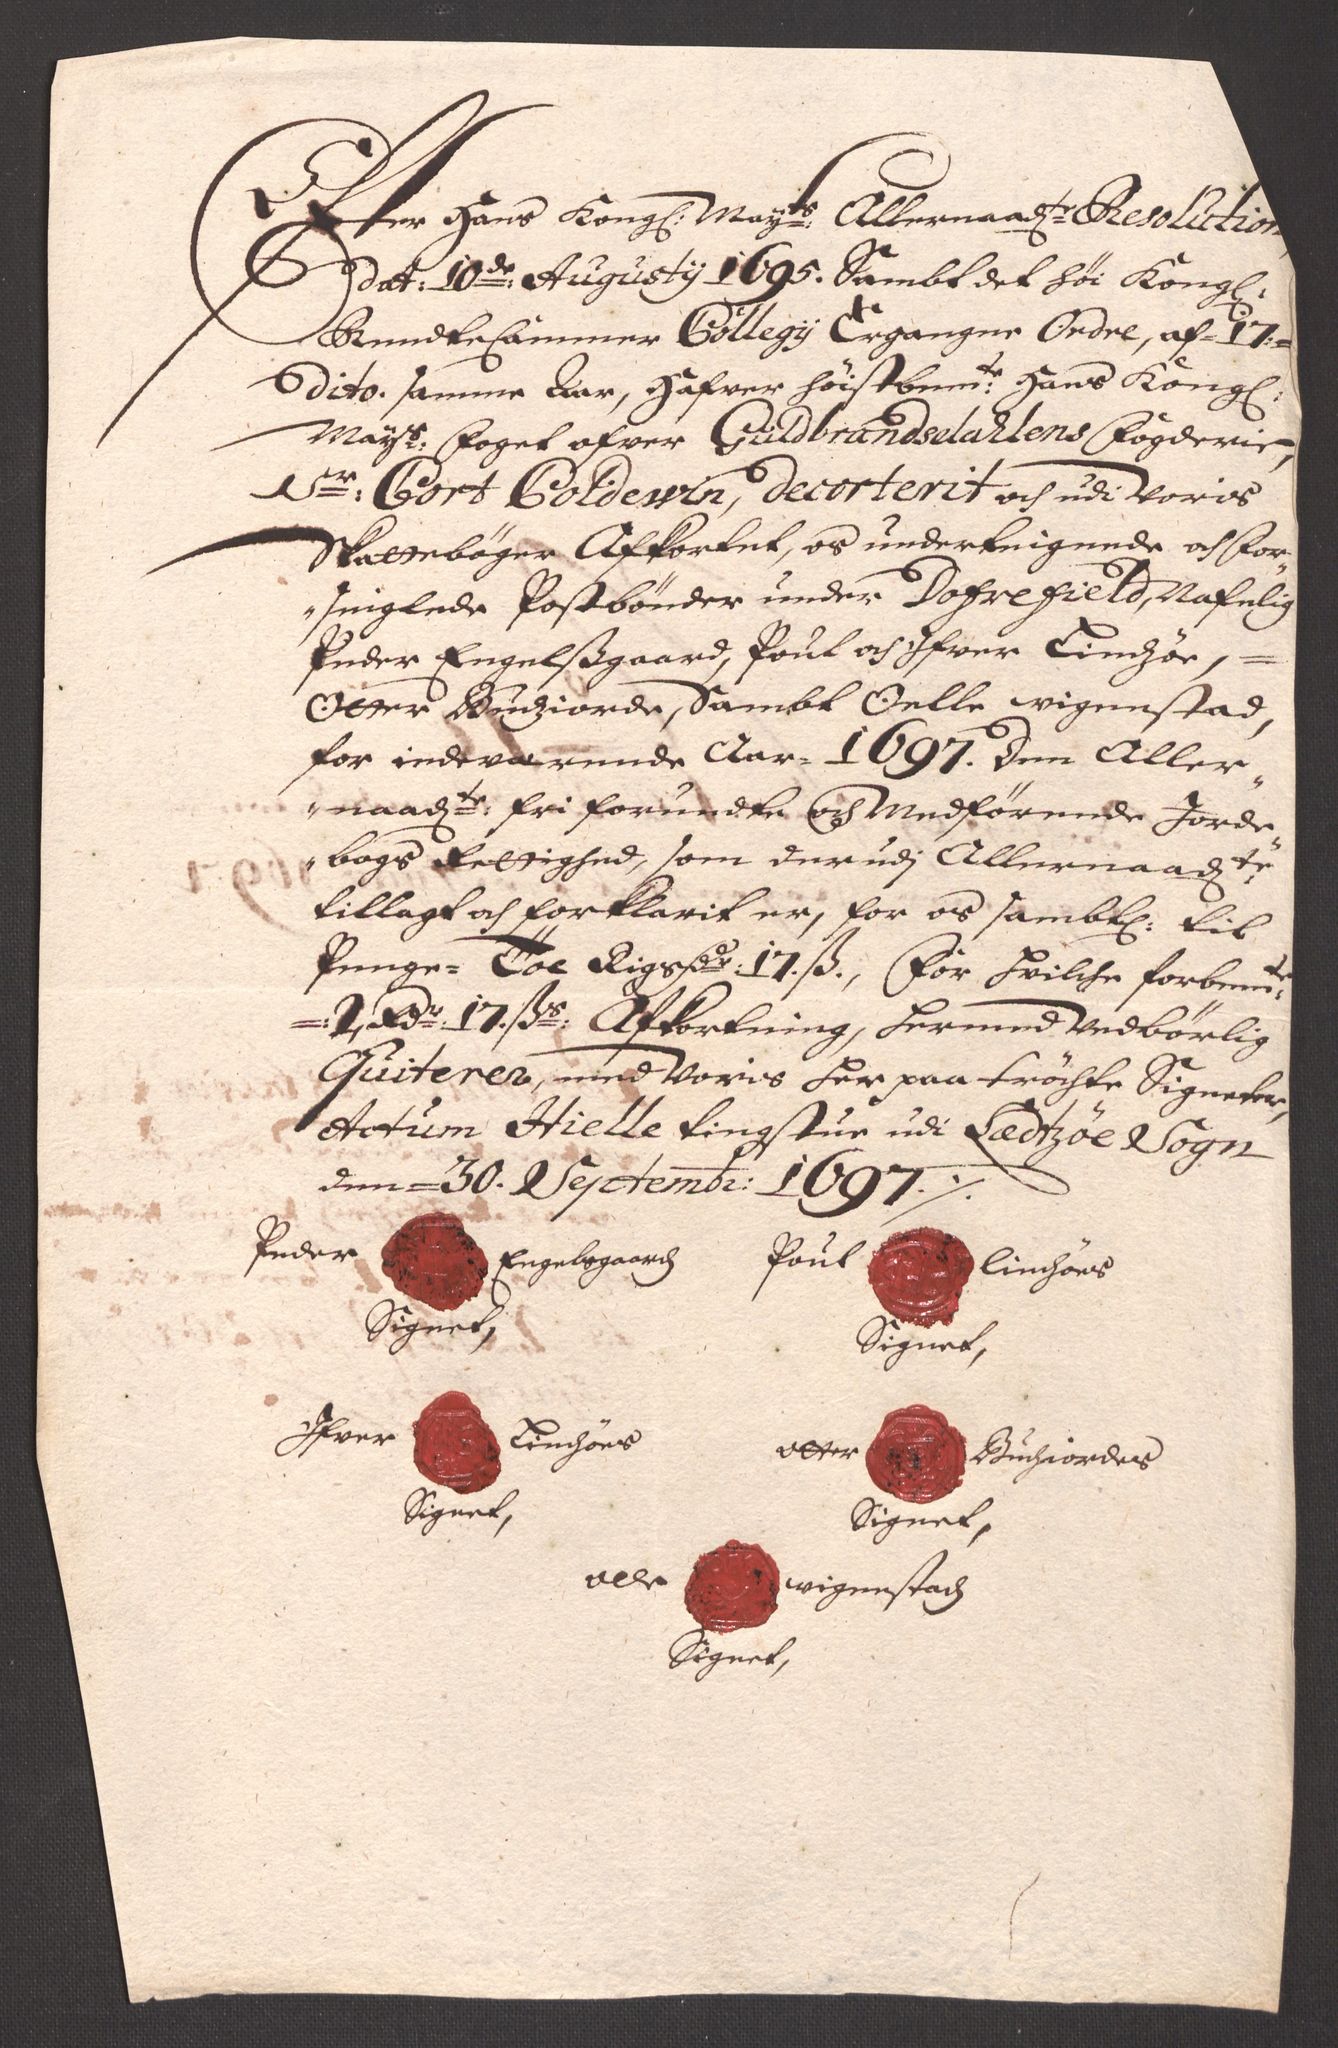 Efter Hans Kongl: Mayts: Allernaadste Resolution
dat: 10de: Augustij 1695. Sambt det höi Kongl:
Rendte Cammer Collegij Ergangne Ordre, af 17:=
dito. samme Aar, Hafver höistbemte: Hans Kongl:
Mayts: Foget ofver Guldbrandsdahlens Fogderie,
Sr: Cort Coldewin, decorterit och udi voris
Skattebøger Afkortet, os underteignede och For-
"seiglede Postbønder under Dofrefield, Nafnlig
Peder Engelsgaard, Poul och Ifver Lindzøe, =
Otter Budziorde, Sambt Oelle wigenstad,
for indeværende Aar= 1697. Den Aller"
"naadste: fri forundte och Medførende Jorde"
"bogs Rettighed, som derudj Allernaadste
tillagt och forklarit er, for os sambtl: till
Penge= Toe Rigsdr: 17. ß., For hvilche forbemte:
=: 2, Rdr: 17. ßs: Afkortning, hermed Vedbørlig
Quiterer, med Voris her paa tröchte Signeter,
Actum Hielle tingstue udi Lædtzöe Sogn
den= 30. Septembr: 1697./.
Peder Engelsgaards Poul Lindzøes
Signet, Signet,
Ifver Lindzøes Otter Budziordes
Signet, Signet,
Olle wigenstads
Signet,